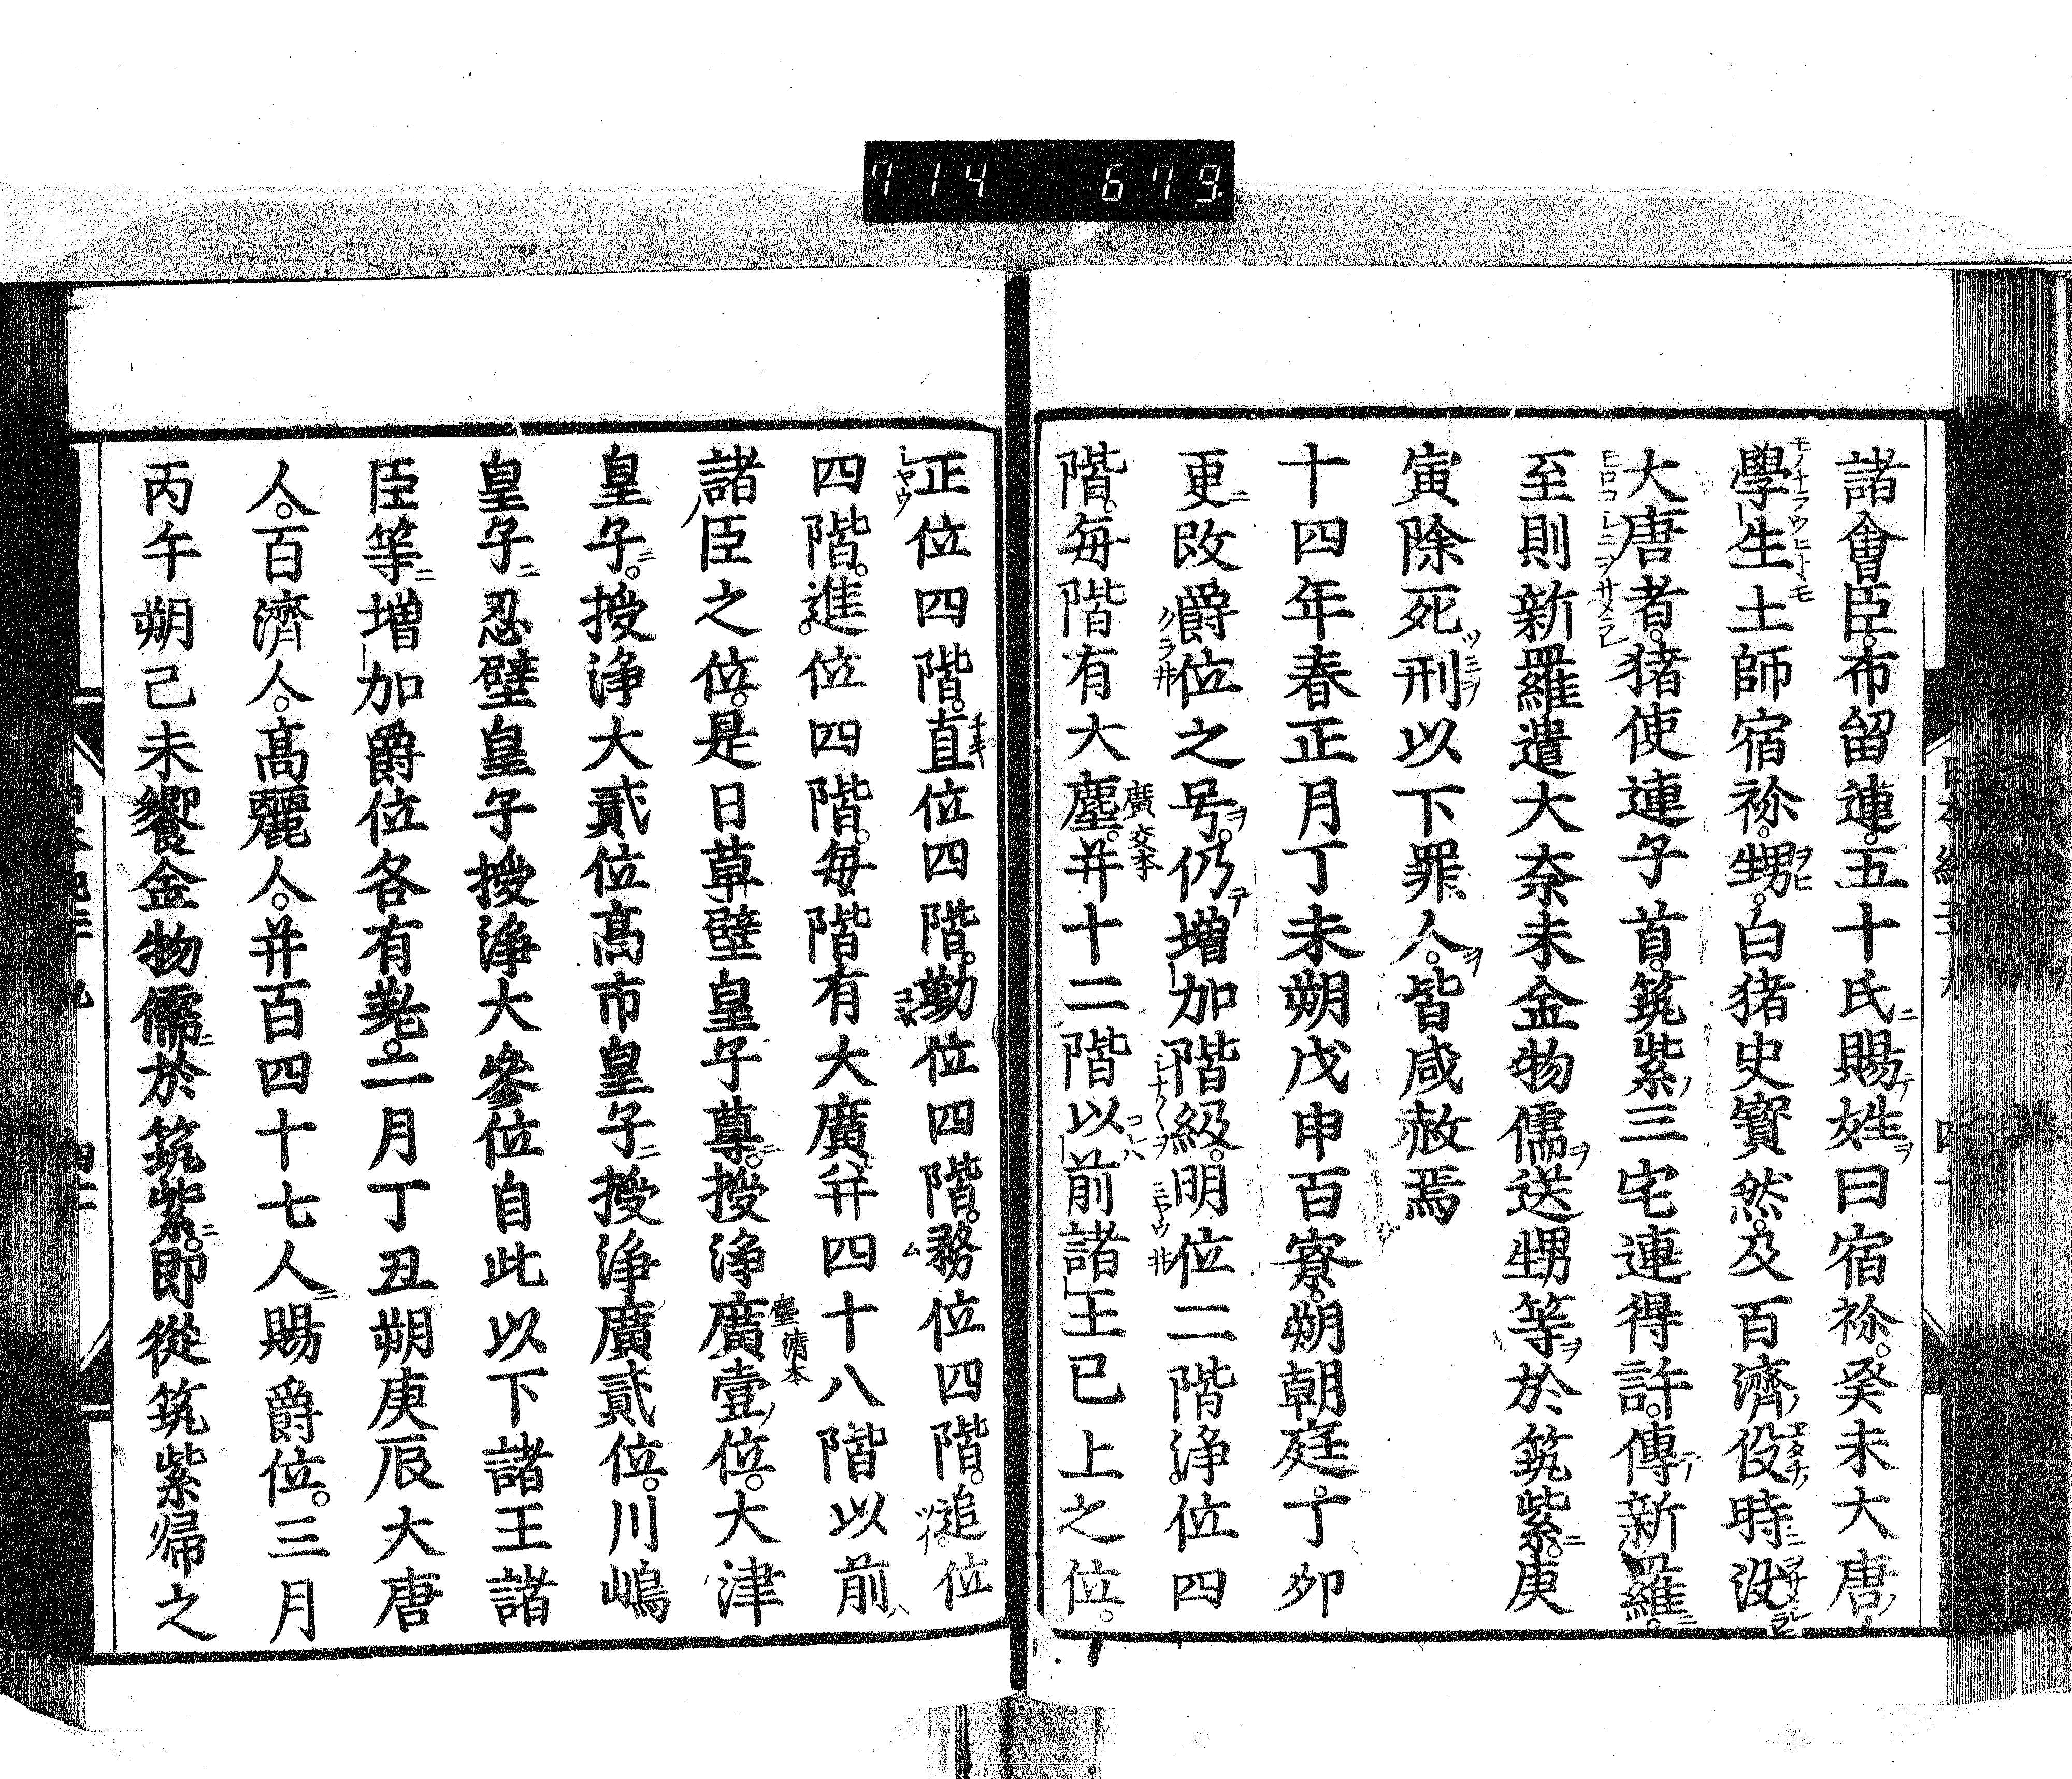 714 679
諸會臣布留連五十氏賜姓曰宿祢癸未大唐
學生土師宿祢甥白猪史寶然及百濟役時没
大唐者猪使連子首筑紫三宅連得許傳新羅
至則新羅遣大奈未金物儒送甥等於筑紫庚
寅除死刑以下罪人皆咸赦焉
十四年春正月丁未朔戊申百寮朔朝庭丁卯
更改爵位之号仍増加階級明位二階浄位四
階毎階有大塵并十二階以前諸王已上之位
廣交本
正位四階直位四階勤位四階務位四階追位
四階進位四階毎階有大廣并四十八階以前
諸臣之位是日草壁皇子尊授浄廣壹位大津
塵清本
皇子授浄大貳位髙市皇子授浄廣貳位川嶋
皇子忍壁皇子授浄大參位自此以下諸王諸
臣等増加爵位各有差二月丁丑朔庚辰大唐
人百濟人髙麗人并百四十七人賜爵位三月
丙午朔己未饗金物儒於筑紫即從筑紫帰之